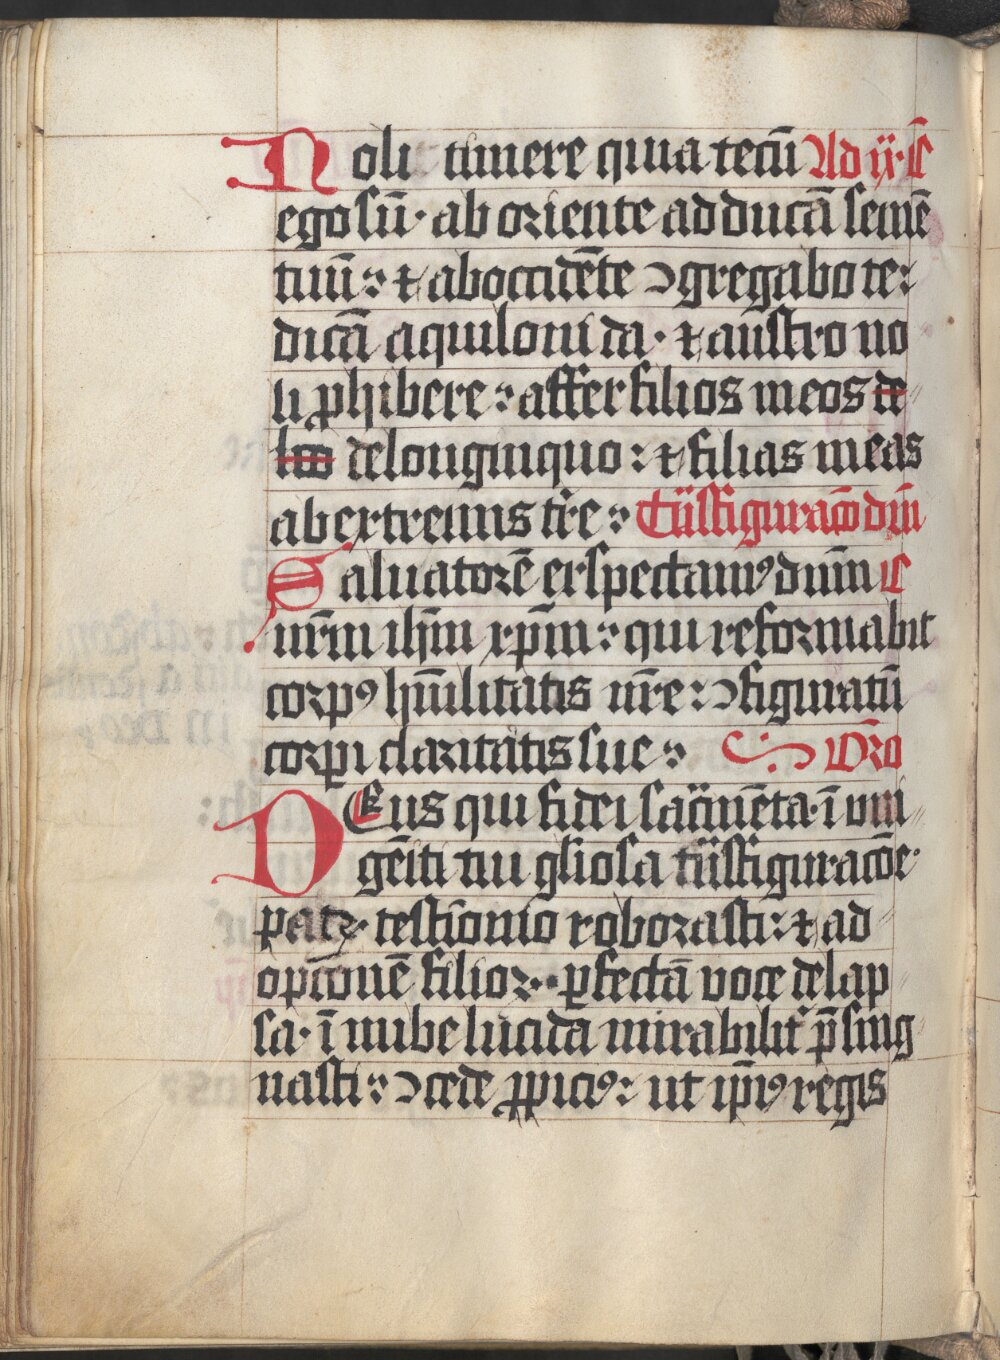 Noli timere quia tecū Ad ix· C̄
ego sū· ab oriente adducā semē
tuū : ⁊ ab occidēte ꝯgregabo te :
dicā aquiloni da· ⁊ austro no
li ꝓhibere : affer filios meos de
loo de longinquo : ⁊ filias meas
ab extremis tr̄e : Tn̄sfiguracō dn̄i
Saluatorē exspectamꝰ dn̄m C
nr̄m ih̄m xp̄m : qui reformabit
corpꝰ hūilitatis nr̄e : ꝯfiguratū
corꝑi claritatis sue : Oro̅
DEus qui fidei sac̄mēta· ī vni
gēiti tui gl̄iosa tn̄sfiguracōe·
patꝝ· testīonio roborasti : ⁊ ad
opcōnē filioꝝ·· ꝑfectā voce delap
sa· ī nube lucida mirabilit͛ p̄sing
nasti : ꝯcede ꝓpiciꝰ : ut ip̄iꝰ regis